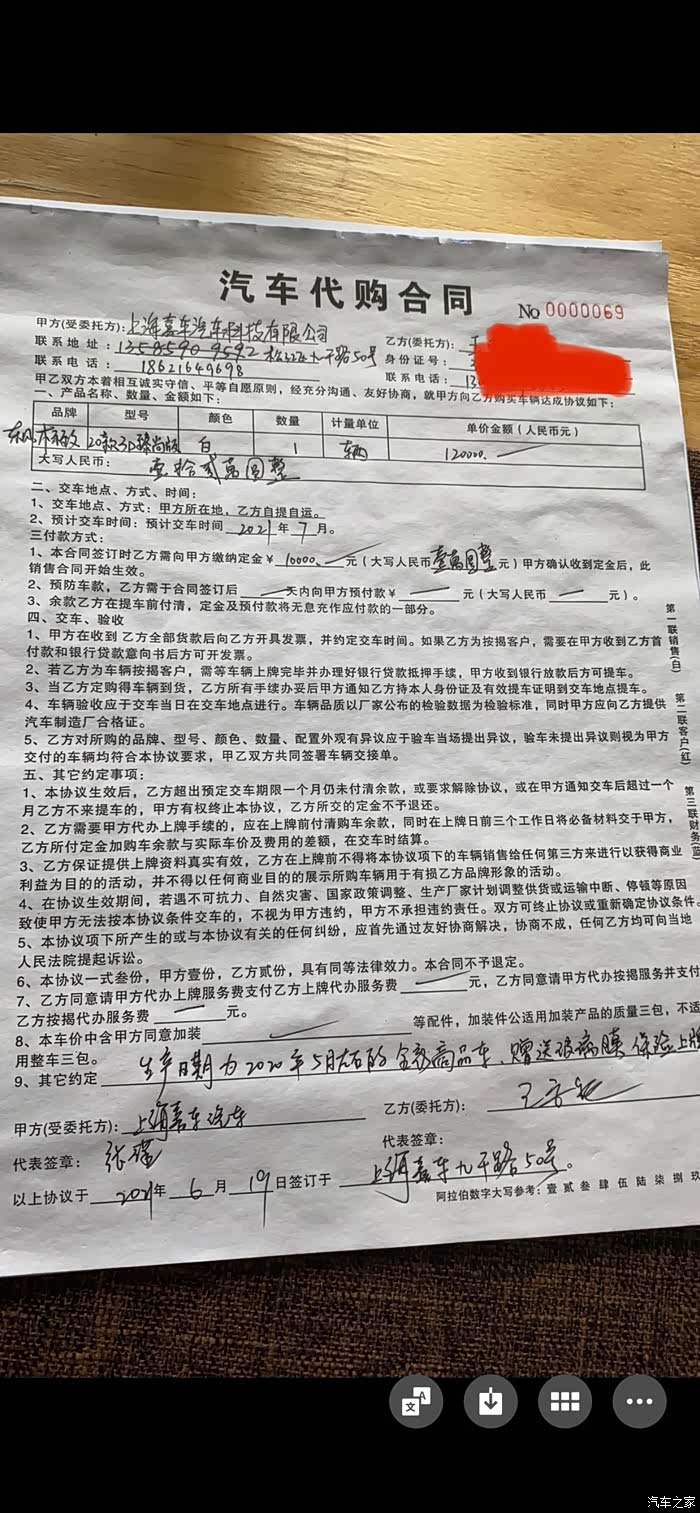 汽车代购合同
No 0000069
甲方(受委托方):上海嘉车汽车科技有限公司
乙方(委托方):
联系地址:13585909592 松江区九干路50号
身份证号:
联系电话:18621649698
联系电话:13
甲乙双方本着相互诚实守信、平等自愿原则，经充分沟通、友好协商，就甲方向乙方购买车辆达成协议如下:
一、产品名称、数量、金额如下:
品牌 型号 颜色 数量 计量单位 单价金额（人民币元）
20款 臻尚版 白 1 辆 120000.
大写人民币: 壹拾贰萬圆整
二、交车地点、方式、时间:
1、交车地点、方式: 甲方所在地，乙方自提自运。
2、预计交车时间: 预计交车时间 2021 年 7 月。
三付款方式:
1、本合同签订时乙方需向甲方缴纳定金¥ 10000. 元（大写人民币 壹萬圆整 元）甲方确认收到定金后，此
销售合同开始生效。
2、预防车款，乙方需于合同签订后 天内向甲方预付款¥ 元（大写人民币 元）。
3、余款乙方在提车前付清，定金及预付款将无息充作应付款的一部分。
四、交车、验收
1、甲方在收到 乙方全部货款后向乙方开具发票，并约定交车时间。如果乙方为按揭客户，需要在甲方收到乙方首
付款和银行贷款意向书后方可开发票。
2、若乙方为车辆按揭客户，需等车辆上牌完毕并办理好银行贷款抵押手续，甲方收到银行放款后方可提车。
3、当乙方定购得车辆到货，乙方所有手续办妥后甲方通知乙方持本人身份证及有效提车证明到交车地点提车。
4、车辆验收应于交车当日在交车地点进行。车辆品质以厂家公布的检验数据为检验标准，同时甲方应向乙方提供
汽车制造厂合格证。
5、乙方对所购的品牌、型号、颜色、数量、配置外观有异议应于验车当场提出异议，验车未提出异议则视为甲方
交付的车辆均符合本协议要求，甲乙双方共同签署车辆交接单。
五、其它约定事项:
1、本协议生效后，乙方超出预定交车期限一个月仍未付清余款，或要求解除协议，或在甲方通知交车后超过一个
月乙方不来提车的，甲方有权终止本协议，乙方所交的定金不予退还。
2、乙方需要甲方代办上牌手续的，应在上牌前付清购车余款，同时在上牌日前三个工作日将必备材料交于甲方，
乙方所付定金加购车余款与实际车价及费用的差额，在交车时结算。
3、乙方保证提供上牌资料真实有效，乙方在上牌前不得将本协议项下的车辆销售给任何第三方来进行以获得商业
利益为目的的活动，并不得以任何商业目的的展示所购车辆用于有损乙方品牌形象的活动。
4、在协议生效期间，若遇不可抗力、自然灾害、国家政策调整、生产厂家计划调整供货或运输中断、停顿等原因
致使甲方无法按本协议条件交车的，不视为甲方违约，甲方不承担违约责任。双方可终止协议或重新确定协议条件。
5、本协议项下所产生的或与本协议有关的任何纠纷，应首先通过友好协商解决，协商不成，任何乙方均可向当地
人民法院提起诉讼。
6、本协议一式叁份，甲方壹份，乙方贰份，具有同等法律效力。本合同不予退定。
7、乙方同意请甲方代办上牌服务费支付乙方上牌代办服务费 元，乙方同意请甲方代办按揭服务并支付
乙方按揭代办服务费 元。
8、本车价中含甲方同意加装 等配件，加装件公适用加装产品的质量三包，不适
用整车三包。
9、其它约定 生产日期为2020年5月左右的全新商品车、赠送玻璃膜 保险上牌
甲方(受委托方): 上海嘉车汽车
乙方(委托方):
代表签章: 张
代表签章:
以上协议于 2021 年 6 月 19 日签订于 上海嘉车九干路50号。
阿拉伯数字大写参考: 壹 贰 叁 肆 伍 陆 柒 捌 玖
第一联销售(白)
第二联客户(红)
第三联财务(蓝
汽车之家